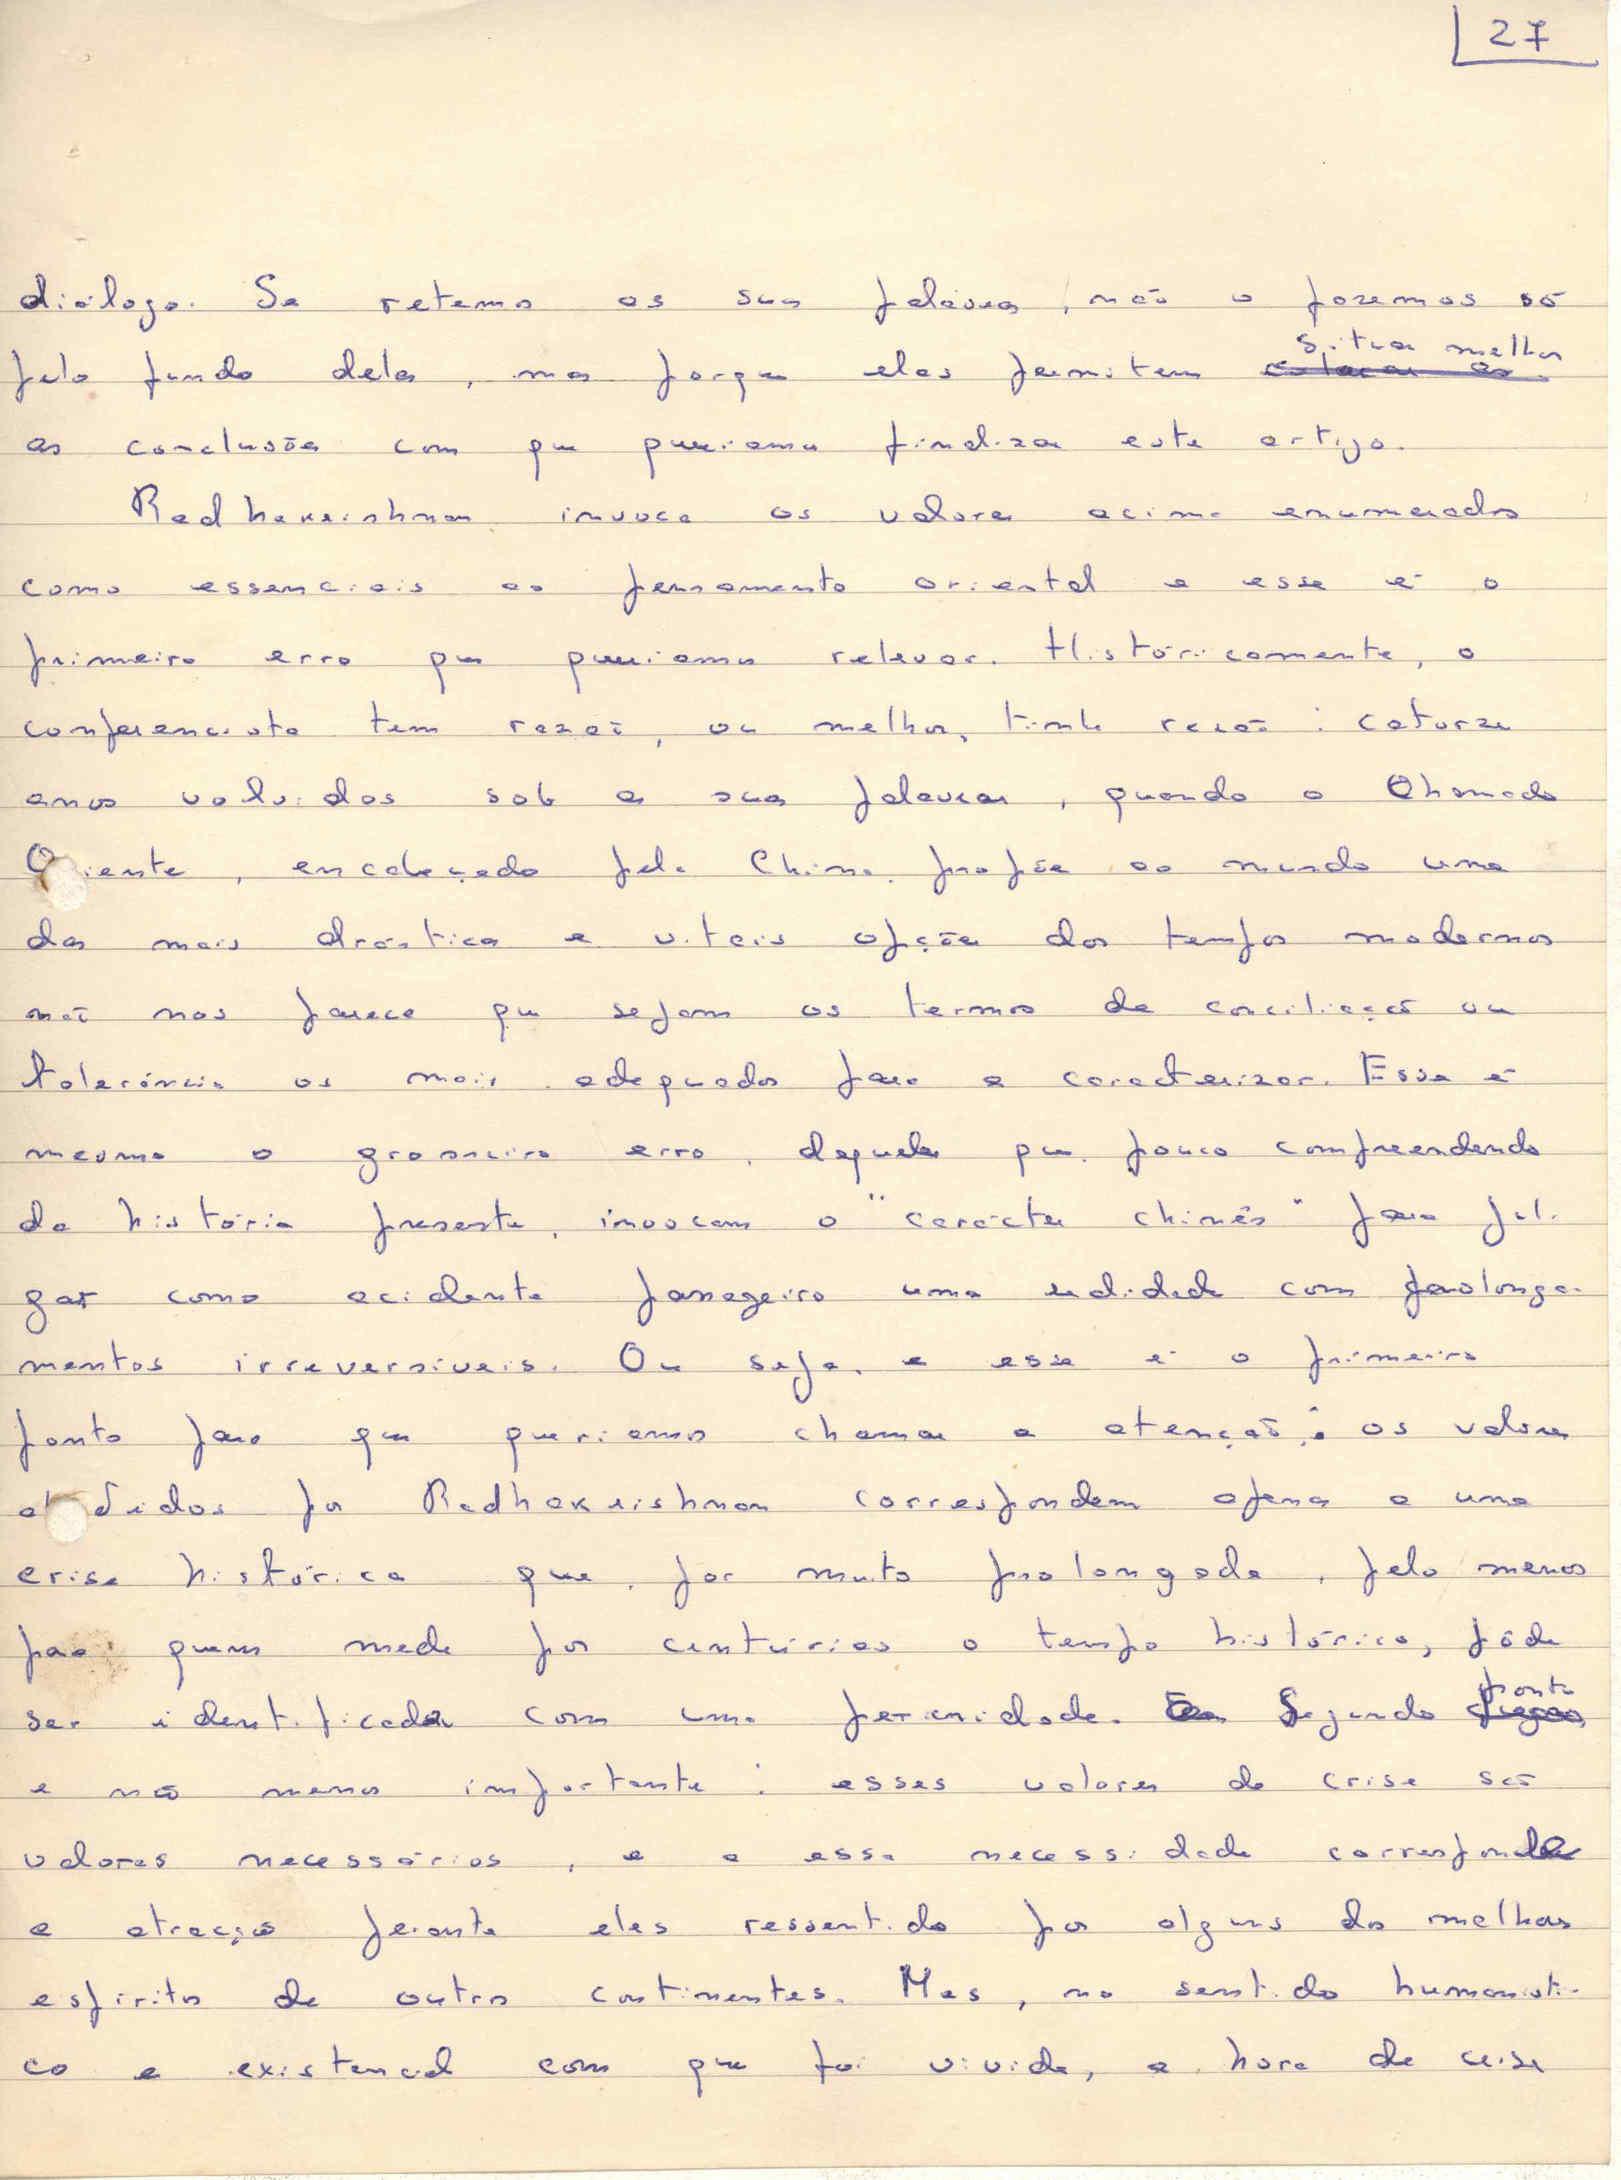 27
diálogo. Se retemos as suas palavras, não o fazemos só
situar melhor
pelo fundo delas, mas porque elas permitem
as conclusões com que queriamos finalizar este artigo.
Radhakrishnan invoca os valores acima enumerados
como essenciais ao pensamento oriental e esse é o
primeiro erro que queriamos relevar. Históricamente, o
conferencista tem razão, ou melhor, tinha razão: catorze
anos volvidos sob as suas palavras, quando o chamado
Oriente, encabeçado pela China, propõe ao mundo uma
das mais drásticas e vitais opções dos tempos modernos
não nos parece que sejam os termos de conciliação ou
tolerância os mais adequados para a caracterizar. Esse é
mesmo o grosseiro erro, daqueles que, pouco compreendendo
da história presente, invocam o "carácter chinês" para jul-
gar como acidente passageiro uma realidade com prolonga-
mentos irreversíveis. Ou seja, e esse é o primeiro
ponto para que queriamos chamar a atenção: os valores
aludidos por Radhakrishnan correspondem apenas a uma
crise histórica que, por muito prolongada, pelo menos
para quem mede por centúrias o tempo histórico, pôde
ser identificada com uma perenidade. Segundo ponto
e não menos importante: esses valores de crise são
valores necessários, e a essa necessidade corresponde
a atracção perante eles ressentida por alguns dos melhores
espiritos de outros continentes. Mas, no sentido humanisti-
co e existencial com que foi vivida, a hora de crise